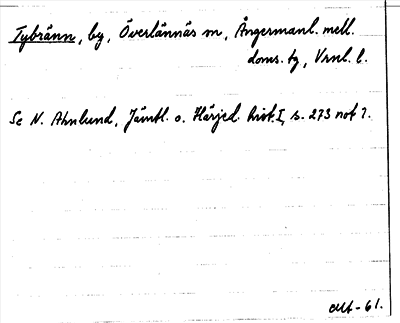 Tybränn, by, Överlännäs sn, Ångermanl. mell.
doms. tg, Vrnl. l.
Se N. Ahnlund, Jämtl. o. Härjed. hist. I, s. 273 not 7.
-61.